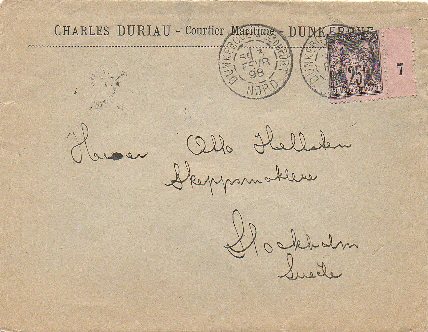 CHARLES DURIAU - Courtier Maritime - DUNKERQUE
DUNKERQUE
98
NORD
25
7
Herr Otto Hellsten
Skeppsmäklare
Stockholm
Suede